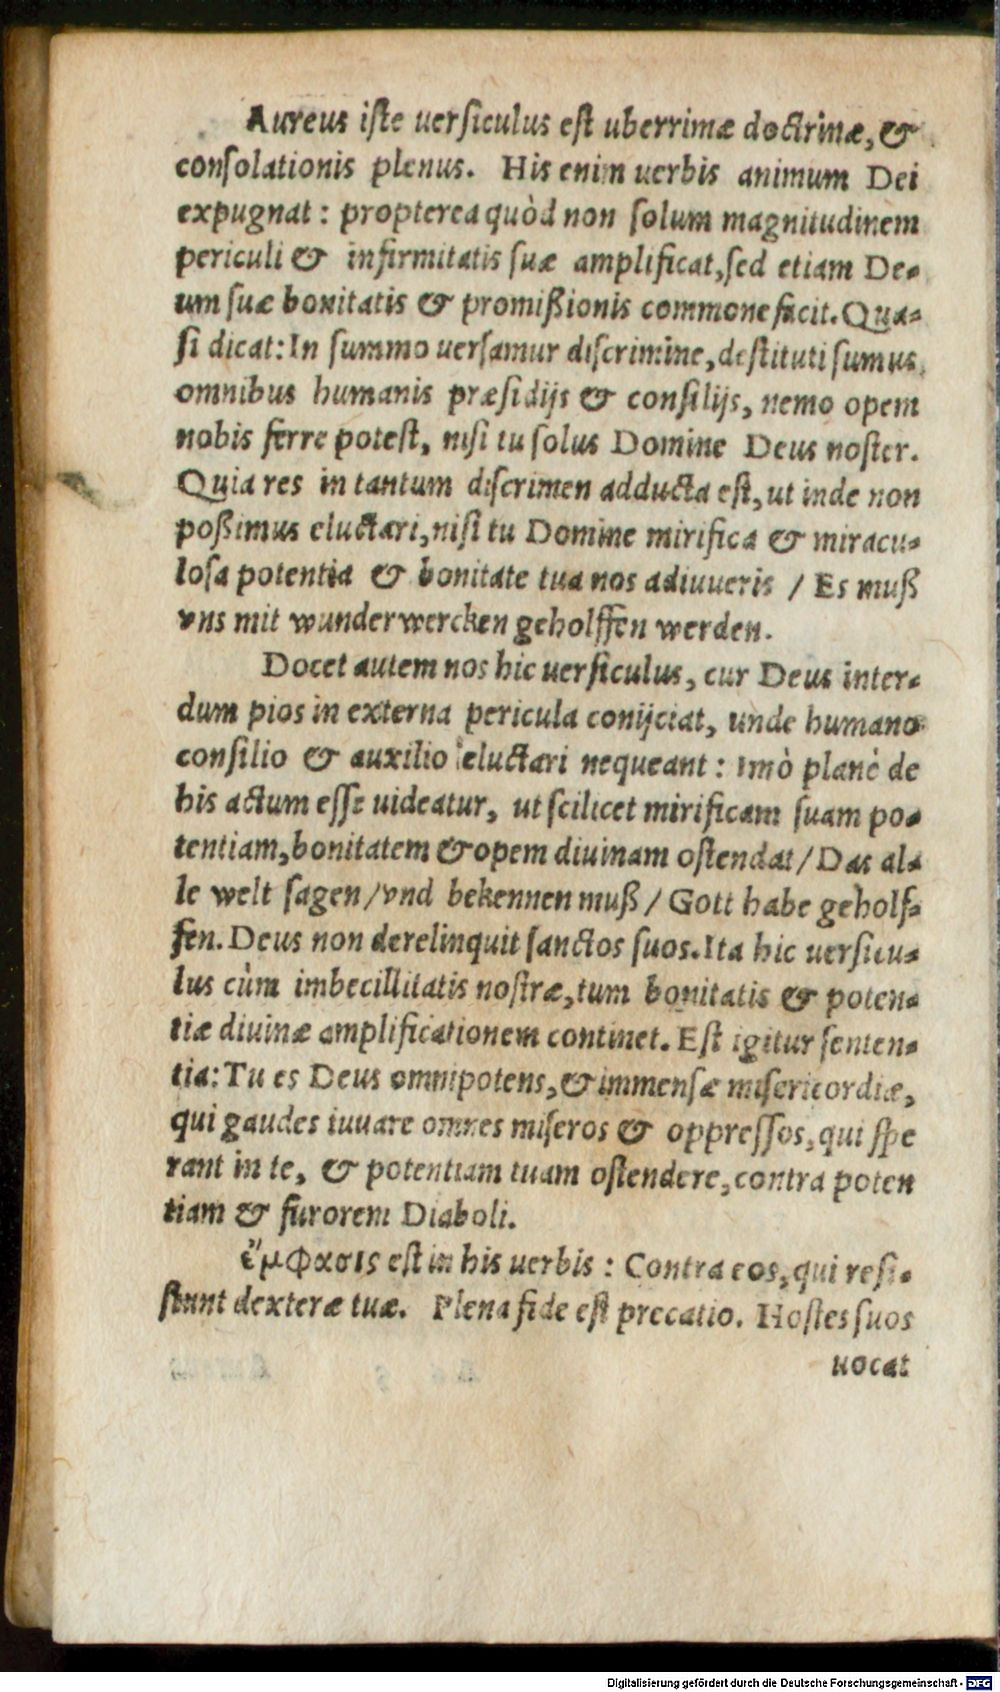 Aureus iſte uerſiculus eſt uberrimæ doctrinæ, &
conſolationis plenus. His enim uerbis animum Dei
expugnat: propterea quòd non ſolum magnitudinem
periculi & infirmitatis ſuæ amplificat, ſed etiam De-
um ſuæ bonitatis & promißionis commonefacit. Qua-
ſi dicat: In ſummo uerſamur diſcrimine, deſtituti ſumus
omnibus humanis præſidijs & conſilijs, nemo opem
nobis ferre poteſt, niſi tu ſolus Domine Deus noſter.
Quia res in tantum diſcrimen adducta eſt, ut inde non
poßimus eluctari, niſi tu Domine mirifica & miracu-
loſa potentia & bonitate tua nos adiuueris / Es muß
vns mit wunderwercken geholffen werden.
Docet autem nos hic uerſiculus, cur Deus inter-
dum pios in externa pericula conijciat, unde humano
conſilio & auxilio eluctari nequeant: imò planè de
his actum eſſe uideatur, ut ſcilicet mirificam ſuam po-
tentiam, bonitatem & opem diuinam oſtendat / Das al-
le welt ſagen / vnd bekennen muß / Gott habe geholf-
fen. Deus non derelinquit ſanctos ſuos. Ita hic uerſicu-
lus cùm imbecillitatis noſtræ, tum bonitatis & poten-
tiæ diuinæ amplificationem continet. Eſt igitur ſenten-
tia: Tu es Deus omnipotens, & immenſæ miſericordiæ,
qui gaudes iuuare omnes miſeros & oppreſſos, qui ſpe
rant in te, & potentiam tuam oſtendere, contra poten
tiam & furorem Diaboli.
ἔμφασις eſt in his uerbis: Contra eos, qui reſi-
ſtunt dexteræ tuæ. Plena fide eſt precatio. Hoſtes ſuos
uocat
Digitalisierung gefördert durch die Deutsche Forschungsgemeinschaft - DFG